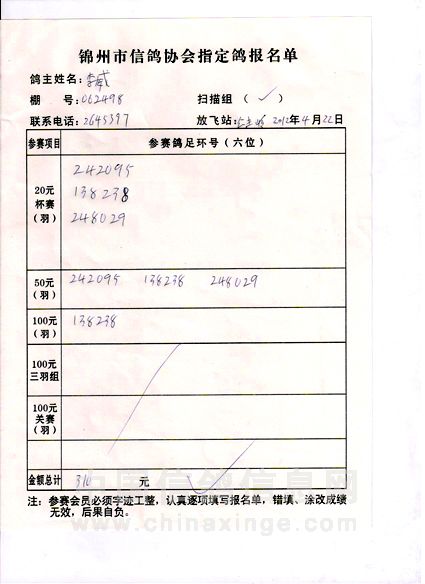 锦州市信鸽协会指定鸽报名单
鸽主姓名: 李威
棚 号: 062498
扫描组 ( ✓ )
联系电话: 2645397
放飞站: 2012年4月22日
参赛项目 参赛鸽足环号(六位)
20元
杯赛
(羽)
242095
138238
248029
50元
(羽)
242095 138238 248029
100元
(羽)
138238
100元
三羽组
100元
关赛
(羽)
金额总计 310 元
注: 参赛会员必须字迹工整, 认真逐项填写报名单, 错填、涂改成绩
无效, 后果自负。
中国信鸽信息网
www.chinaxinge.com